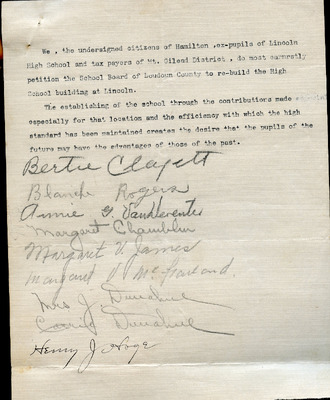 We , the undersigned citizens of Hamilton ,ex-pupils of Lincoln
High School and tax payers of Mt. Gilead District , do most earnestly
petition the School Board of Loudoun County to re-build the High
School building at Lincoln.
The establishing of the school through the contributions made
especially for that location and the efficiency with which the high
standard has been maintained creates the desire that the pupils of the
future may have the advantages of those of the past.
Bertie Clagett
Blanche Rogers
Annie G. Vandeventer
Margaret Chamblin
Margaret V. James
Margaret V. McFarland.
Mrs J. Dunahue
Carrie Dunahue
Henry J Hoge